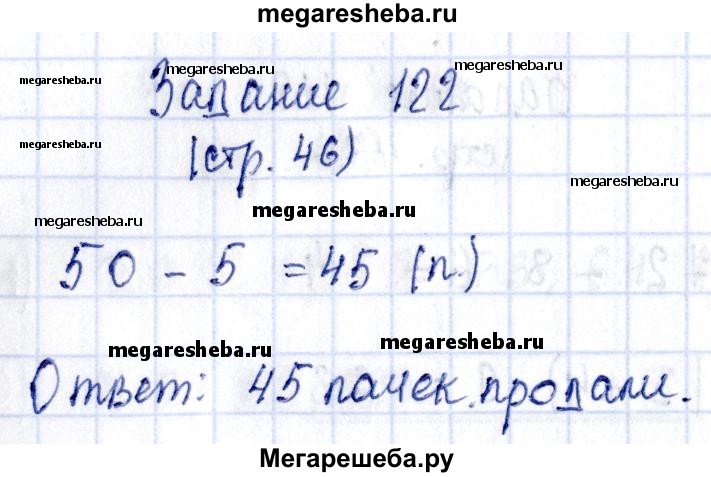 megaresheba.ru
megaresheba.ru
megaresheba.ru
Задание 122
megaresheba.ru
(стр. 46)
megaresheba.ru
megaresheba.ru
megaresheba.ru
50 - 5 = 45 (п.)
megaresheba.ru
megaresheba.ru
Ответ: 45 пачек продали.
Мегарешеба.ру